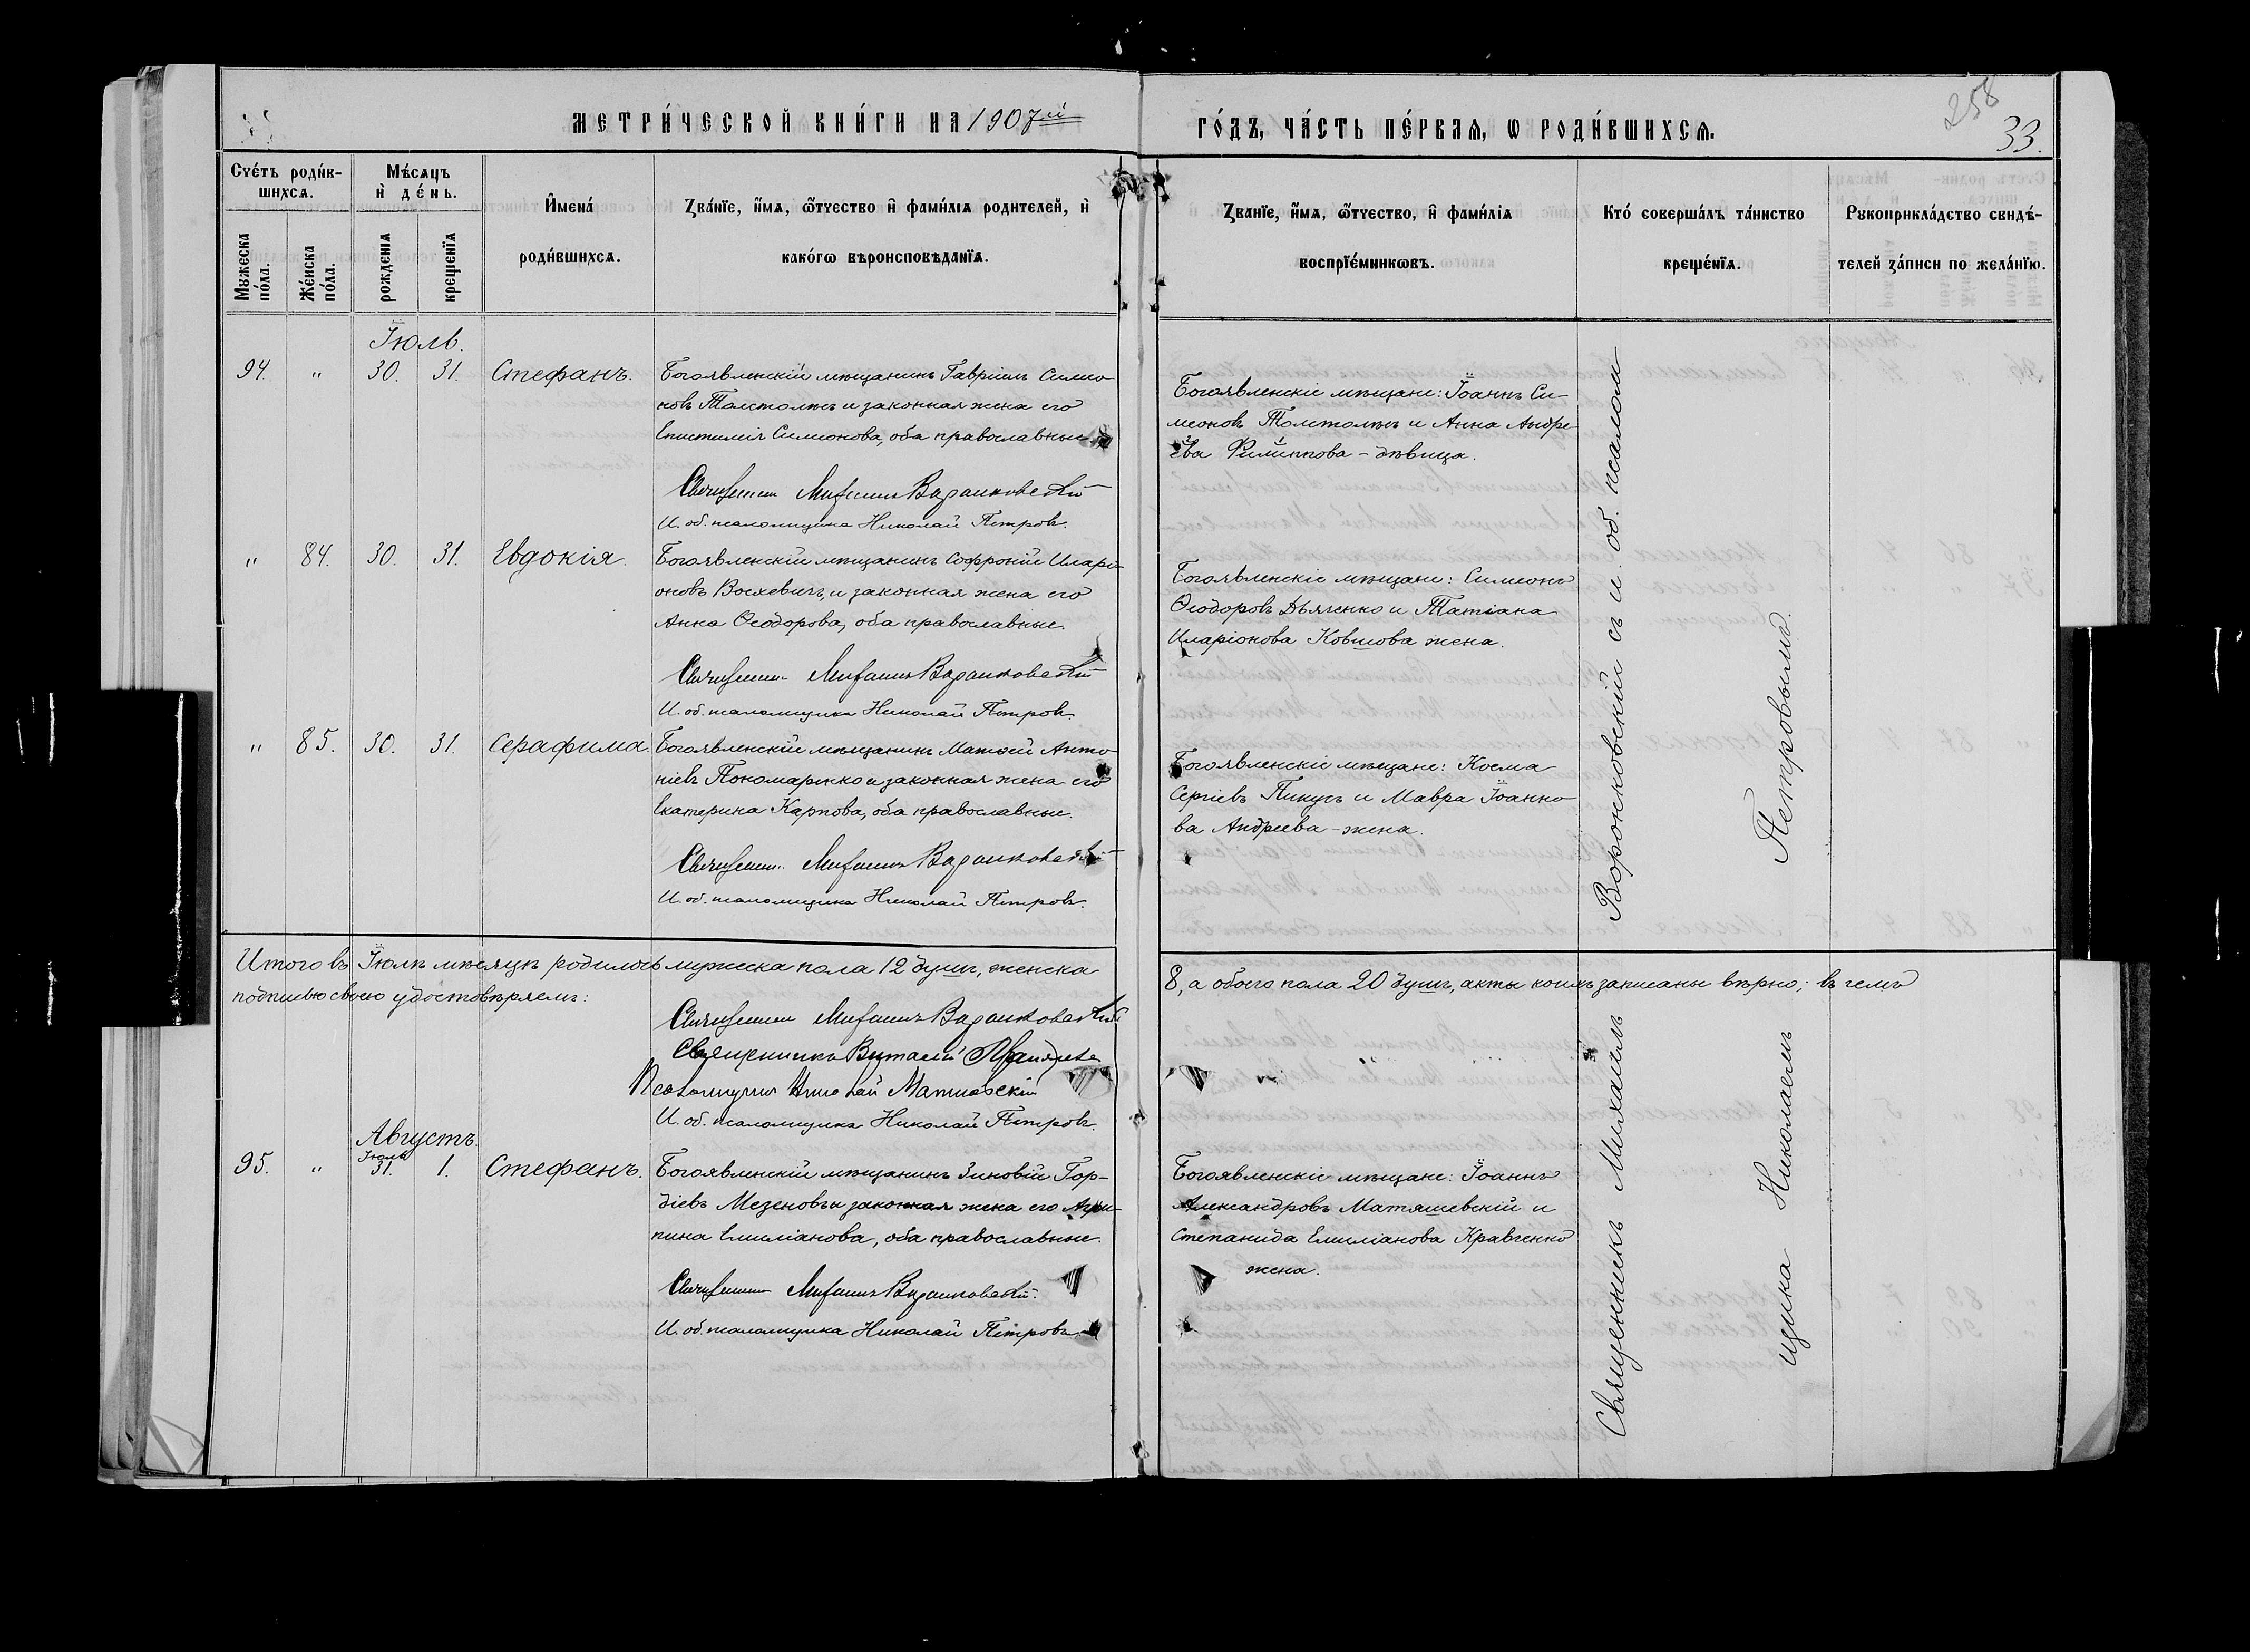 МЕТРИ́ЧЕСКОЙ КНИ́ГИ НА 1907й
ГО́ДЪ, ЧА́СТЬ ПЕ́РВАѦ, Ѡ РОДИ́ВШИХСѦ.
258
33.
Счетъ роди́в-
шихсѧ.
Мужеска по́ла.
Же́нска по́ла.
Мѣ́сѧцъ
и҆ де́нь.
рожденїѧ
крещенїѧ
И҆мена́
роди́вшихсѧ.
Зва́нїе, и҆́мѧ, ѻ҆́тчество и҆ фами́лїѧ родителей, и҆
како́гѡ вѣроисповѣданїѧ.
Зва́нїе, и҆́мѧ, ѻ҆́тчество, и҆ фами́лїѧ
воспрїе́мникѡвъ.
Кто́ соверша́лъ та́инство
креще́нїѧ.
Рукоприкла́дство свидѣ́-
телей за́писи по жела́нїю.
Іюль.
94. " 30. 31. Стефанъ.
Богоявленскій мѣщанинъ Гавріилъ Симео-
новъ Толстолѣсъ и законная жена его
Епистимія Симеонова, оба православные
Священникъ Михаилъ Воронковскій
И. об. псаломщика Николай Петровъ.
Богоявленскіе мѣщане: Іоаннъ Си-
меоновъ и Анна Андре-
ева Филиппова - дѣвица.
" 84. 30. 31. Евдокія.
Богоявленскій мѣщанинъ Софроній Иларі-
оновъ и законная жена его
Анна Ѳеодорова, оба православные.
Священникъ Михаилъ Воронковскій
И. об. псаломщика Николай Петровъ.
Богоявленскіе мѣщане: Симеонъ
Ѳеодоровъ Дьяченко и Татіана
Иларіонова Ковшова жена.
" 85. 30. 31. Серафима.
Богоявленскій мѣщанинъ Матѳей Анто-
ніевъ Пономаренко и законная жена его
Екатерина Карпова, оба православные.
Священникъ Михаилъ Воронковскій
И. об. псаломщика Николай Петровъ.
Богоявленскіе мѣщане: Косма
Сергіевъ Пикулъ и Мавра Іоанно-
ва Андреева - жена.
Итого въ Іюлѣ мѣсяцѣ родилось мужеска пола 12 душъ, женска
8, а обоего пола 20 душъ, акты коихъ записаны вѣрно; въ чемъ
подписью своею удостовѣряемъ:
Священникъ Михаилъ Воронковскій
Священникъ Виталій
Псаломщикъ Николай
И. об. псаломщика Николай Петровъ.
Августъ.
Іюля
95. " 31. 1. Стефанъ.
Богоявленскій мѣщанинъ Зиновій Гор-
діевъ Мезеновъ и законная жена его Агри-
пина Емиліанова, оба православные.
Священникъ Михаилъ Воронковскій.
И. об. псаломщика Николай Петровъ.
Богоявленскіе мѣщане: Іоаннъ
Александровъ Матяшевскій и
Степанида Емиліанова Кравченко
жена.
Священникъ Михаилъ Воронковскій съ и. об. псалом-
щика Николаемъ Петровымъ.